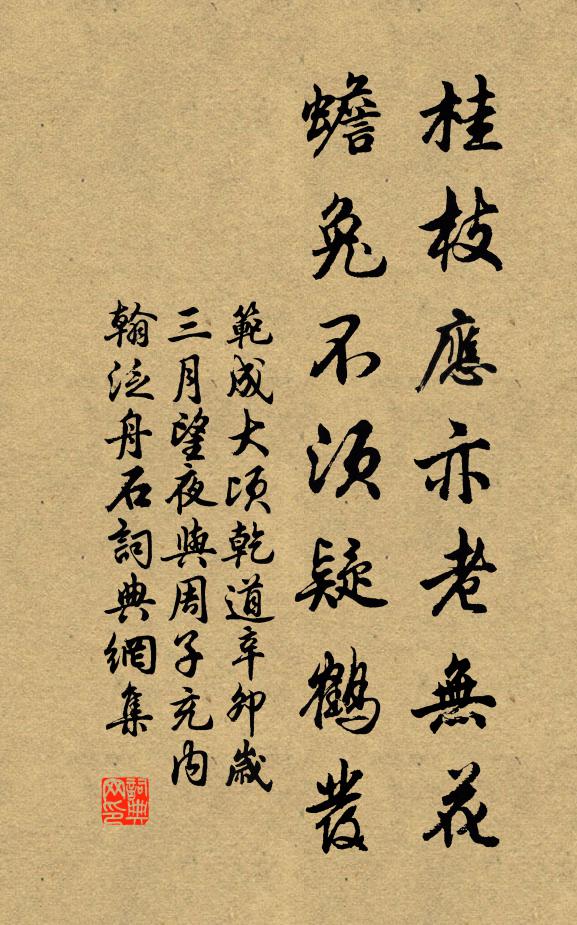 桂枝應亦老無花
蟾兔不須疑鶴發
範成大頃乾道辛卯歲
三月望夜與周子充內
翰泛舟石詞典網集
詞典
网印